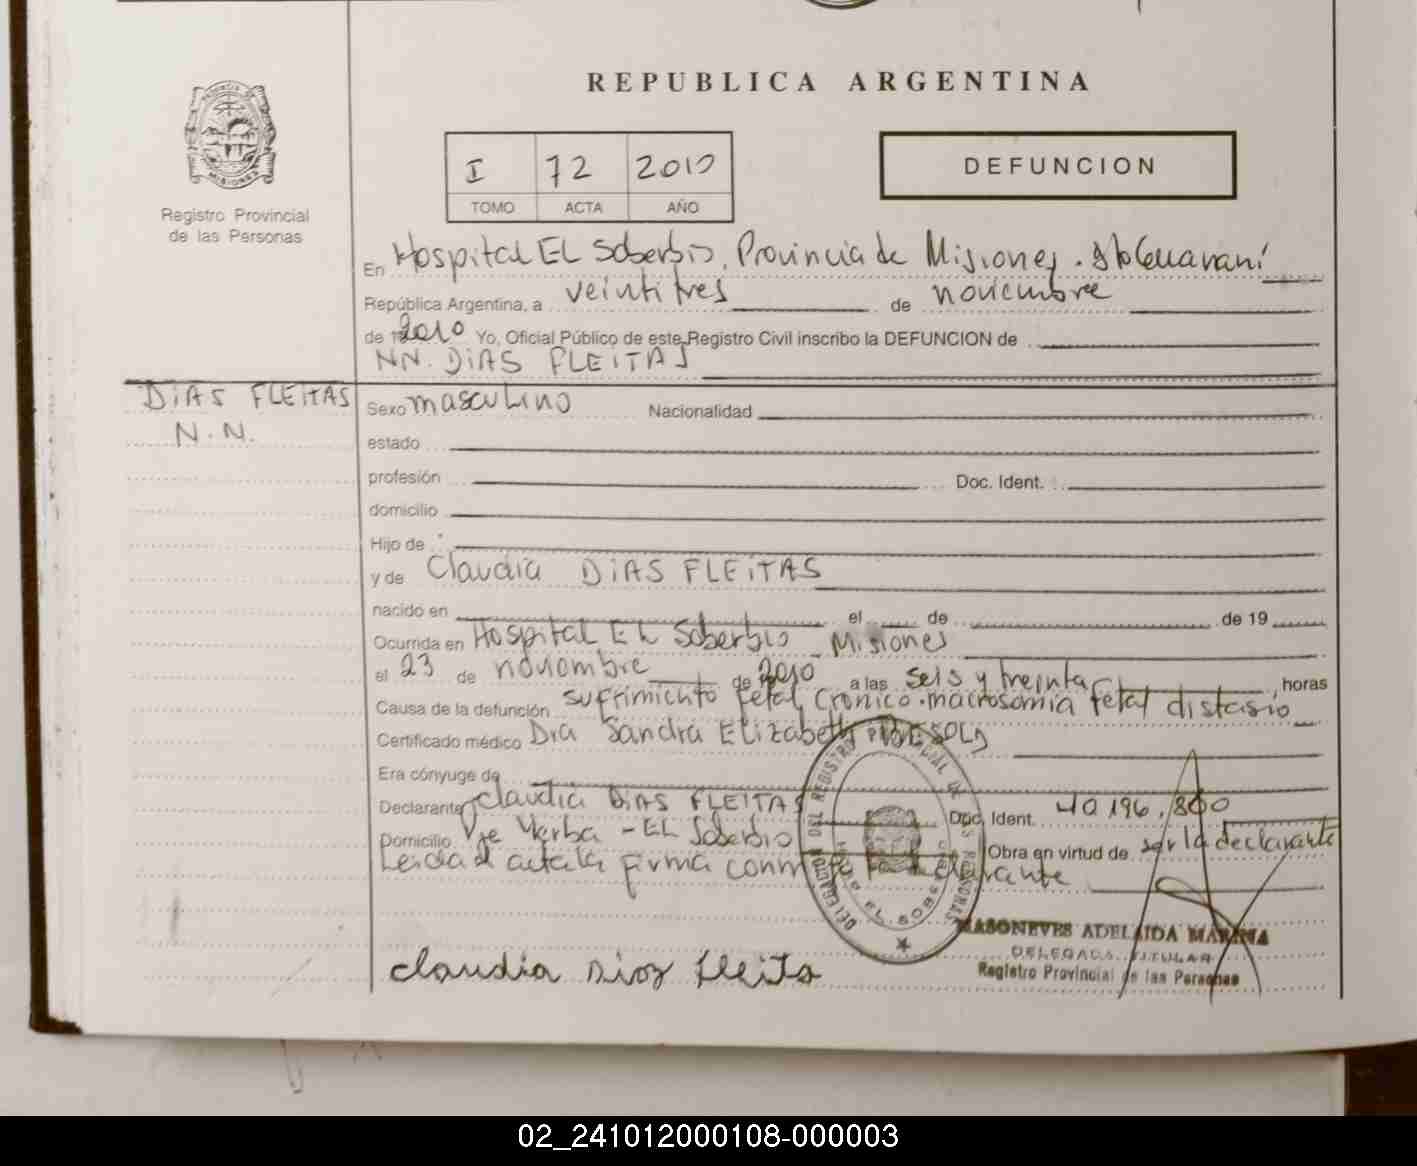 REPUBLICA ARGENTINA
I 72 2010
TOMO ACTA AÑO
DEFUNCION
PROVINCIA DE
MISIONES
Registro Provincial
de las Personas
En Hospital EL Soberbio, Provincia de Misiones. Dto Guaraní
República Argentina, a veintitres de noviembre
de 2010 Yo, Oficial Público de este Registro Civil inscribo la DEFUNCION de
NN. DiAS FLEiTAS
DiAS FLEITAS
N.N.
Sexo masculino Nacionalidad
estado
profesión Doc. Ident.
domicilio
Hijo de
y de Claudia DiAS FLEiTAS
nacido en el de de 19
Ocurrida en Hospital EL Soberbio Misiones
el 23 de noviembre de 2010 a las seis y treinta horas
Causa de la defunción sufrimiento fetal Cronico. macrosomia fetal distosio
Certificado médico Dra Sandra Elizabeth
Era cónyuge de
Declarante Claudia DiAS FLEITAS Doc. Ident. 40 196.800
Domicilio Yerba - EL Soberbio Obra en virtud de ser la declarante
Leida el acta la firma conmigo la declarante
claudia Dias fleita
MASONEVES ADELAIDA MARINA
DELEGADA TITULAR
Registro Provincial de las Personas
02_241012000108-000003